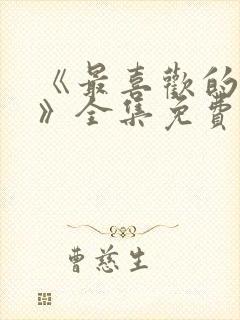 《最喜歡的
》全集免費
曹慈生